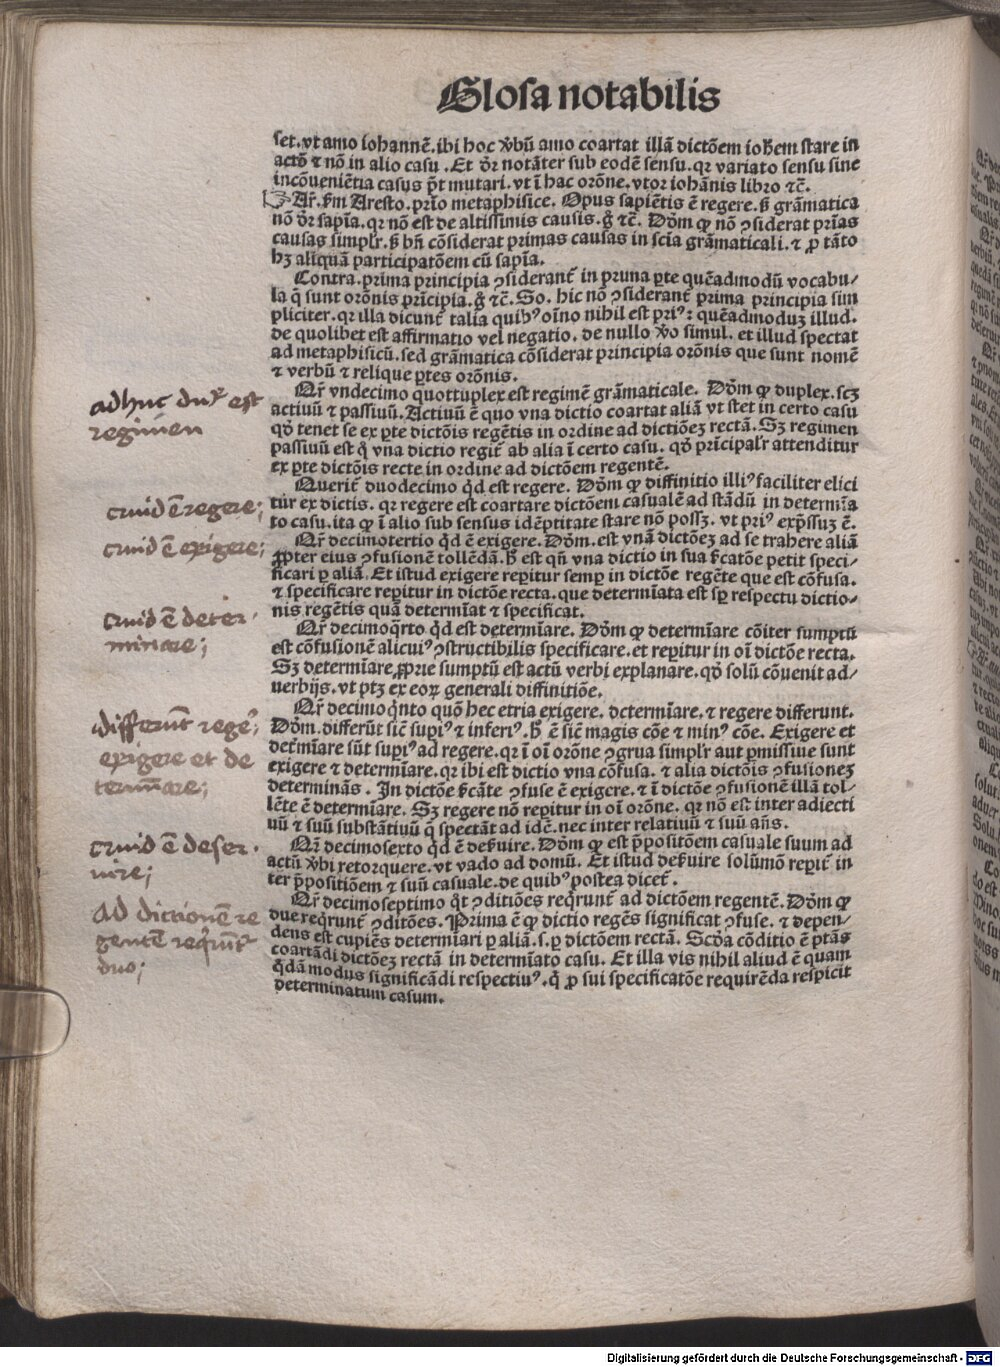 Glosa notabilis
set. vt amo iohannē. ibi hoc v̄bū amo coartat illā dictōem iohēm stare in
actō ⁊ nō in alio casu. Et dr̄ notāter sub eodē sensu. qr variato sensu sine
incōueniētia casus pn̄t mutari. vt ī hac orōne. vtor iohānis libro ⁊c̄.
Ar̄. fm Aresto. prīo metaphisice. Opus sapiētis ē regere. ß grāmatica
nō dr̄ sapīa. qr nō est de altissimis causis. g̊ ⁊c̄. Dōm ꝙ nō ꝯsiderat prīas
causas simplr̄. ß bn̄ cōsiderat primas causas in scīa grāmaticali. ⁊ ꝓ tāto
hꝫ aliquā participatōem cū sapīa.
Contra. prima principia ꝯsiderant̄ in pruna ꝑte quēadmodū vocabu⸗
la q̄ sunt orōnis prīcipia. g̊ ⁊c̄. So. hic nō ꝯsiderant̄ prima principia sim
pliciter. qr illa dicunt̄ talia quibꝰ oīno nihil est priꝰ: quēadmoduꝫ illud.
de quolibet est affirmatio vel negatio. de nullo v̊o simul. et illud spectat
ad metaphisicū. sed grāmatica cōsiderat principia orōnis que sunt nomē
⁊ verbū ⁊ relique ꝑtes orōnis.
Qr̄ vndecimo quottuplex est regimē grāmaticale. Dōm ꝙ duplex. scꝫ
actiuū ⁊ passiuū. Actiuū ē quo vna dictio coartat aliā vt stet in certo casu
qđ tenet se ex ꝑte dictōis regētis in ordine ad dictiōeꝫ rectā. Sꝫ regimen
passiuū est q̊ vna dictio regit̄ ab alia ī certo casu. qđ prīcipalr̄ attenditur
ex ꝑte dictōis recte in ordine ad dictōem regentē.
Querit̄ duodecimo qđ est regere. Dōm ꝙ diffinitio illiꝰ faciliter elici
tur ex dictis. qr regere est coartare dictōem casualē ad stādū in determīa
to casu. ita ꝙ ī alio sub sensus idēptitate stare nō possꝫ. vt priꝰ exp̄ssuꝫ ē.
Qr̄ decimotertio qđ ē exigere. Dōm. est vnā dictōeꝫ ad se trahere aliā
ꝓpter eius ꝯfusionē tollēdā. ħ est qn̄ vna dictio in sua ſcatōe petit speci⸗
ficari ꝑ aliā. Et istud exigere reperitur semꝑ in dictōe regēte que est cōfusa.
⁊ specificare reperitur in dictōe recta. que determīata est sꝑ respectu dictio⸗
nis regētis quā determīat ⁊ specificat.
Qr̄ decimoq̄rto qđ est determīare. Dōm ꝙ determīare cōiter sumptū
est cōfusionē alicuiꝰ ꝯstructibilis specificare. et reperitur in oī dictōe recta.
Sꝫ determīare ꝓprie sumptū est actū verbi explanare. qđ solū cōuenit ad⸗
uerbijs. vt ptꝫ ex eoꝝ generali diffinitiōe.
Qr̄ decimoq̄nto quō hec etria exigere. determīare. ⁊ regere differunt.
Dōm. differūt sic̄ supiꝰ ⁊ inferiꝰ. ħ ē sic̄ magis cōe ⁊ minꝰ cōe. Exigere et
det̄mīare sūt supiꝰ ad regere. qr ī oī orōne ꝯgrua simplr̄ aut ꝑmissiue sunt
exigere ⁊ determīare. qr ibi est dictio vna cōfusa. ⁊ alia dictōis ꝯfusioneꝫ
determinās. In dictōe ſcāte ꝯfuse ē exigere. ⁊ ī dictōe ꝯfusionē illā tol⸗
lēte ē determīare. Sꝫ regere nō reperitur in oī orōne. qr nō est inter adiecti
uū ⁊ suū substātiuū q̄ spectāt ad idē. nec inter relatiuū ⁊ suū an̄s.
Qr̄ decimosexto qđ ē deſuire. Dōm ꝙ est p̄positōem casuale suum ad
actū v̄bi retorquere. vt vado ad domū. Et istud deſuire solūmō reperit̄ in
ter p̄positiōem ⁊ suū casuale. de quibꝰ postea dicet̄.
Qr̄ decimoseptimo q̄t ꝯditiōes req̄runt̄ ad dictōem regentē. Dōm ꝙ
due req̄runt̄ ꝯditōes. Prima ē ꝙ dictio regēs significat ꝯfuse. ⁊ depen⸗
dens est cupiēs determīari ꝑ aliā. s. ꝑ dictōem rectā. Scđa cōditio ē ptās
coartādi dictōeꝫ rectā in determīato casu. Et illa vis nihil aliud ē quam
q̄dā modus significādi respectiuꝰ. q̄ ꝓ sui specificatōe requirēda respicit
determinatum casum.
adhuc dur̄ est
regimen
quid ē regere;
quid ē exigere;
quid ē deter⸗
minare;
differūt regeꝰ;
exigere et de
termīare;
quid ē deser⸗
uire;
ad dictionē re
gentē req̄rūt̄
duo;
Digitalisierung gefördert durch die Deutsche Forschungsgemeinschaft - DFG